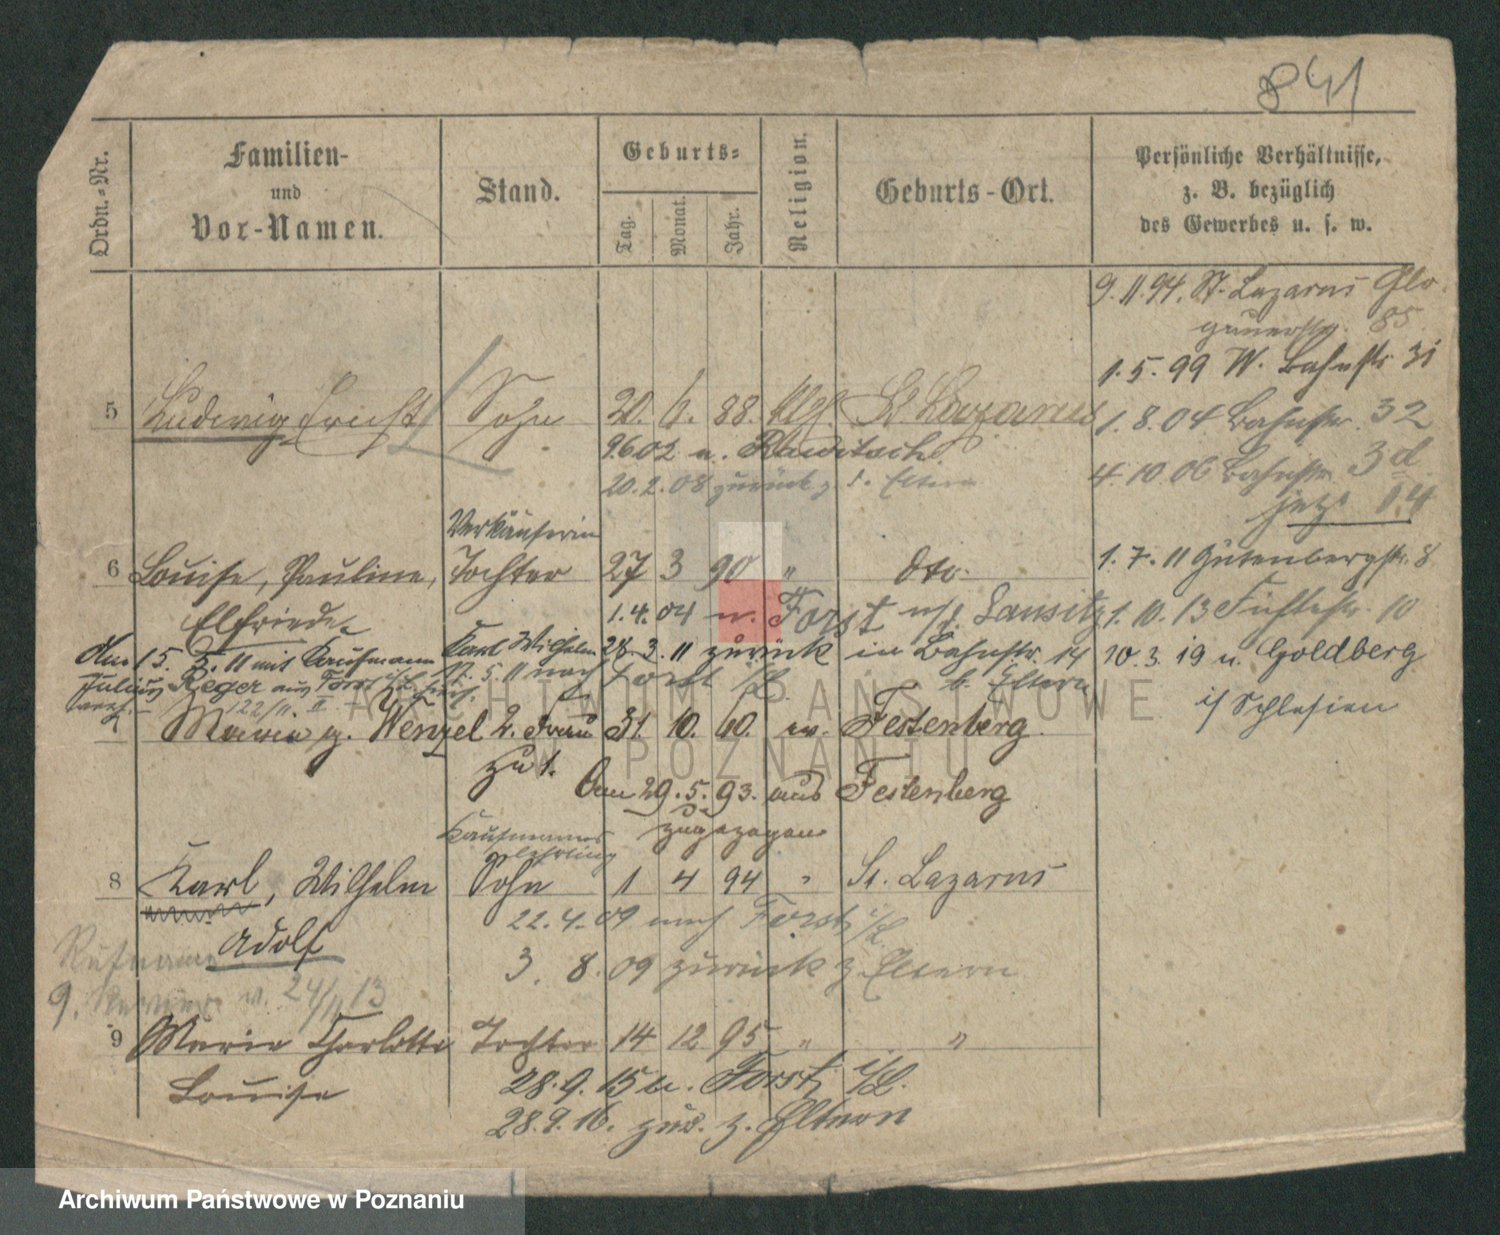 841
Ordn.-Nr.
Familien-
und
Vor-Namen.
Stand.
Geburts-
Tag.
Monat.
Jahr.
Religion.
Geburts-Ort.
Persönliche Verhältnisse,
z. B. bezüglich
des Gewerbes u. s. w.
9.11.94. St. Lazarus Glo-
gauerstr. 85
1.5.99 W. Bahnstr 31
5 Ludwig Erich Sohn 20. 6. 88. St. Lazarus
1.8.04 Bahnstr. 32
9.6.02 n. Rawitsch
4.10.06 Bahnstr. 3d
20.2.08 zurück z. d. Eltern
jetzt 14
Verkäuferin
6 Louise, Pauline, Tochter 27 3 90 " dto.
1.7.11 Gutenbergstr. 8
Elfriede
1.4.04 n. Forst n/d. Lausitz
1.10.13 Fichtestr. 10
28.3.11 zurück in Bahnstr. 14
b. Eltern
10.3.19 n. Goldberg
i/ Schlesien
Karl Wilhelm
den 15. 5. 11 mit Kaufmann
Julius Reger aus Forst
7 Maria g. Wenzel 2. Frau 31. 10. 60. ev. Festenberg.
zu 1.
Am 29.5.93. aus Festenberg
zugezogen
Kaufmanns
lehrling
8 Karl, Wilhelm Sohn 1 4 94 " St. Lazarus
Adolf
22.4.09 nach Forst i/L.
Rufname
3. 8. 09 zurück z Eltern
24/11 13
9 Marie Charlotte Tochter 14 12 95 " "
Louise
28.9.15 n. Forst i/L.
28.9.16. zur. z. Eltern
ARCHIWUM PAŃSTWOWE
W POZNANIU
Archiwum Państwowe w Poznaniu